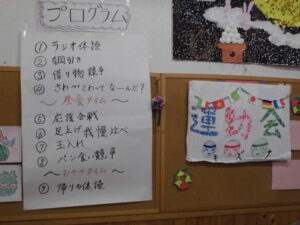 プログラム
① ラジオ体操
② 綱引き
③ 借り物競争
④ さわってさわってな〜んだ?
〜昼食タイム〜
⑤ 応援合戦
⑥ 足上げ我慢比べ
⑦ 玉入れ
⑧ パン食い競争
〜おやつタイム〜
⑨ 帰りの体操
運動会
キズナ